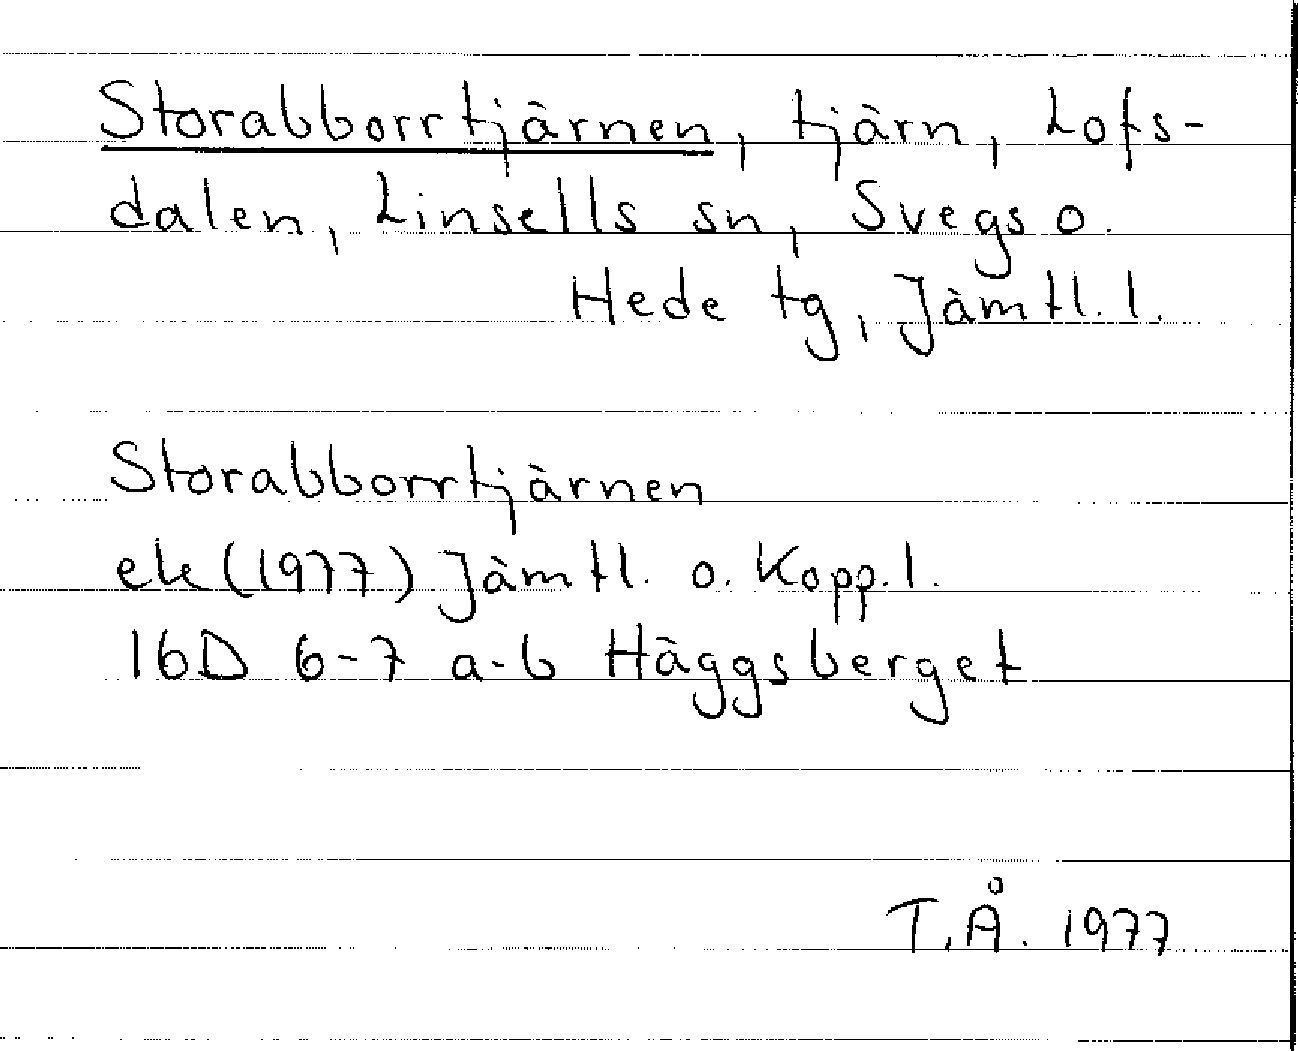 Storabborrtjärnen, tjärn, Lofs-
dalen, Linsells sn, Svegs o.
Hede tg, Jämtl. l.
Storabborrtjärnen
ek (1977) Jämtl. o. Kopp. l.
16D 6-7 a-b Häggsberget
T.Å. 1977